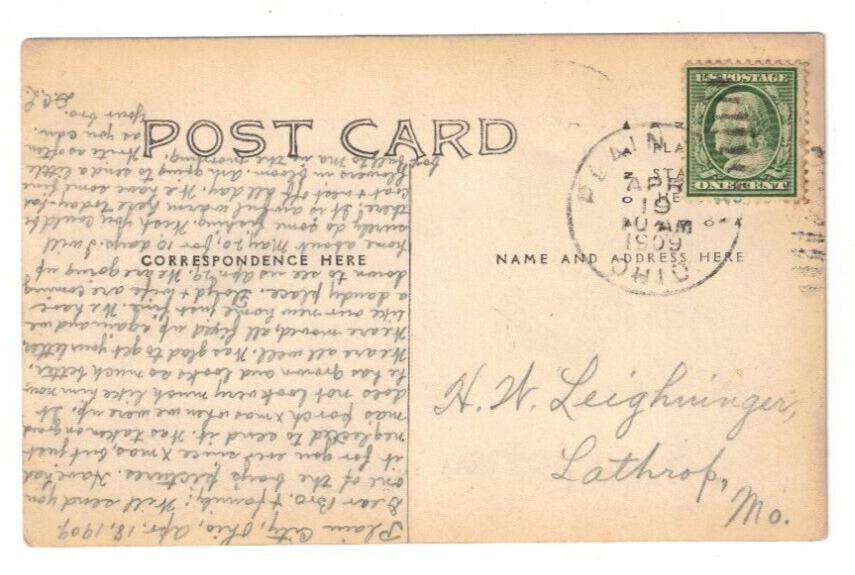 POST CARD
CORRESPONDENCE HERE
NAME AND ADDRESS HERE
U.S. POSTAGE
ONE CENT
PLAIN
APR
19
AM
1909
OHIO
PLA
STA
HE
H. W. Leighninger,
Lathrop,
Mo.
Plain City, Ohio, Apr. 18, 1909.
Dear Bro. & family: Will send you
one of the boys pictures. Have had
it for you ever since Xmas, but just
neglected to send it. Was taken on grand
ma's porch Xmas when we were up. It
does not look very much like him now,
he has grown and looks so much better.
We are all well. Was glad to get your letter.
We are moved, all fixed up again and we
like our new home just fine. We have
a dandy place. & wife are coming
down to see us Apr. 29. We are going up
home about May 20, for 10 days. I will
surely do some fishing. Wish you could be
there! It is awful warm here today-
east & west off all day. We have some fine
flowers in bloom. Am going to send a little
box full to Ma in the morning.
Write as often
as you can.
Your bro.
D.C.L.